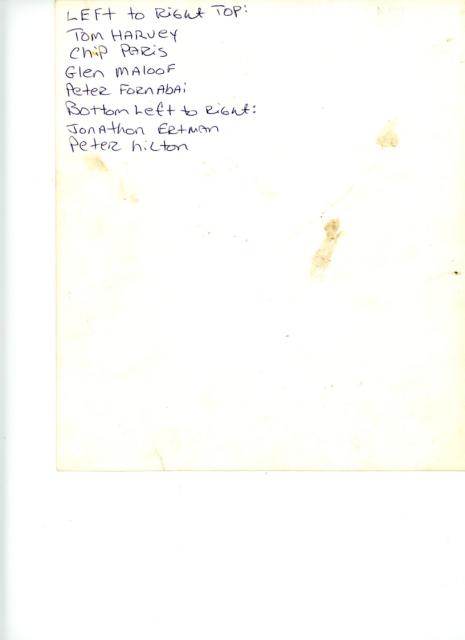 LEFt to Right TOP:
Tom HARVEY
Chip PARIS
Glen MALOOF
Peter FORNAbAi
Bottom Left to Right:
JONAthon ERtMAN
PeteR hiLton